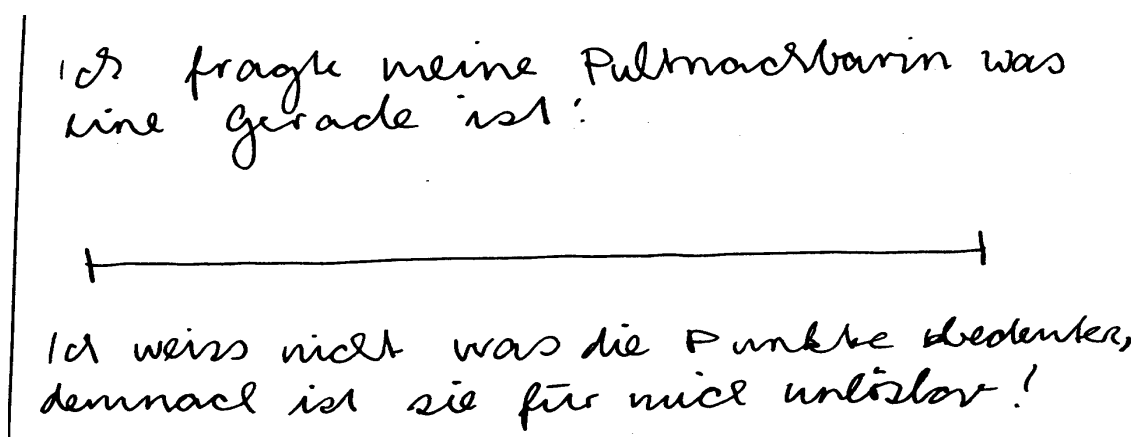 Ich fragte meine Pultnachbarin was
eine Gerade ist:
Ich weiss nicht was die Punkte bedeuten,
demnach ist sie für mich unlösbar!